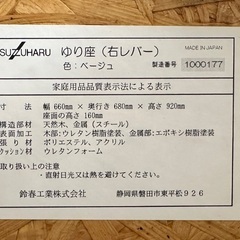 SUZUHARU ゆり座(右レバー) MADE IN JAPAN
色:ベージュ 製造番号 1000177
家庭用品品質表示法による表示
寸法 幅660mm×奥行き680mm×高さ920mm
座面の高さ160mm
構造部材 天然木、金属(スチール)
表面加工 木部:ウレタン樹脂塗装、金属部:エポキシ樹脂塗装
張り材 ポリエステル、アクリル
クッション材 ウレタンフォーム
取り扱い上の注意
・直射日光又は熱を避けてください。
鈴春工業株式会社 静岡県磐田市東平松926